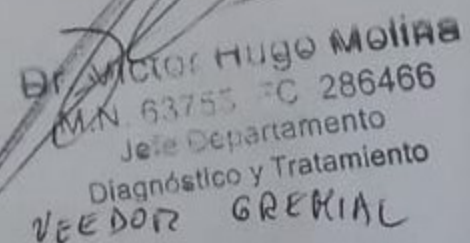 Dr. Victor Hugo Molina
M.N. 63755 FC 286466
Jefe Departamento
Diagnóstico y Tratamiento
VEEDOR GREMIAL